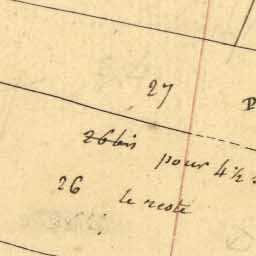 27
26 bis
pour 4 ½
26
le reste